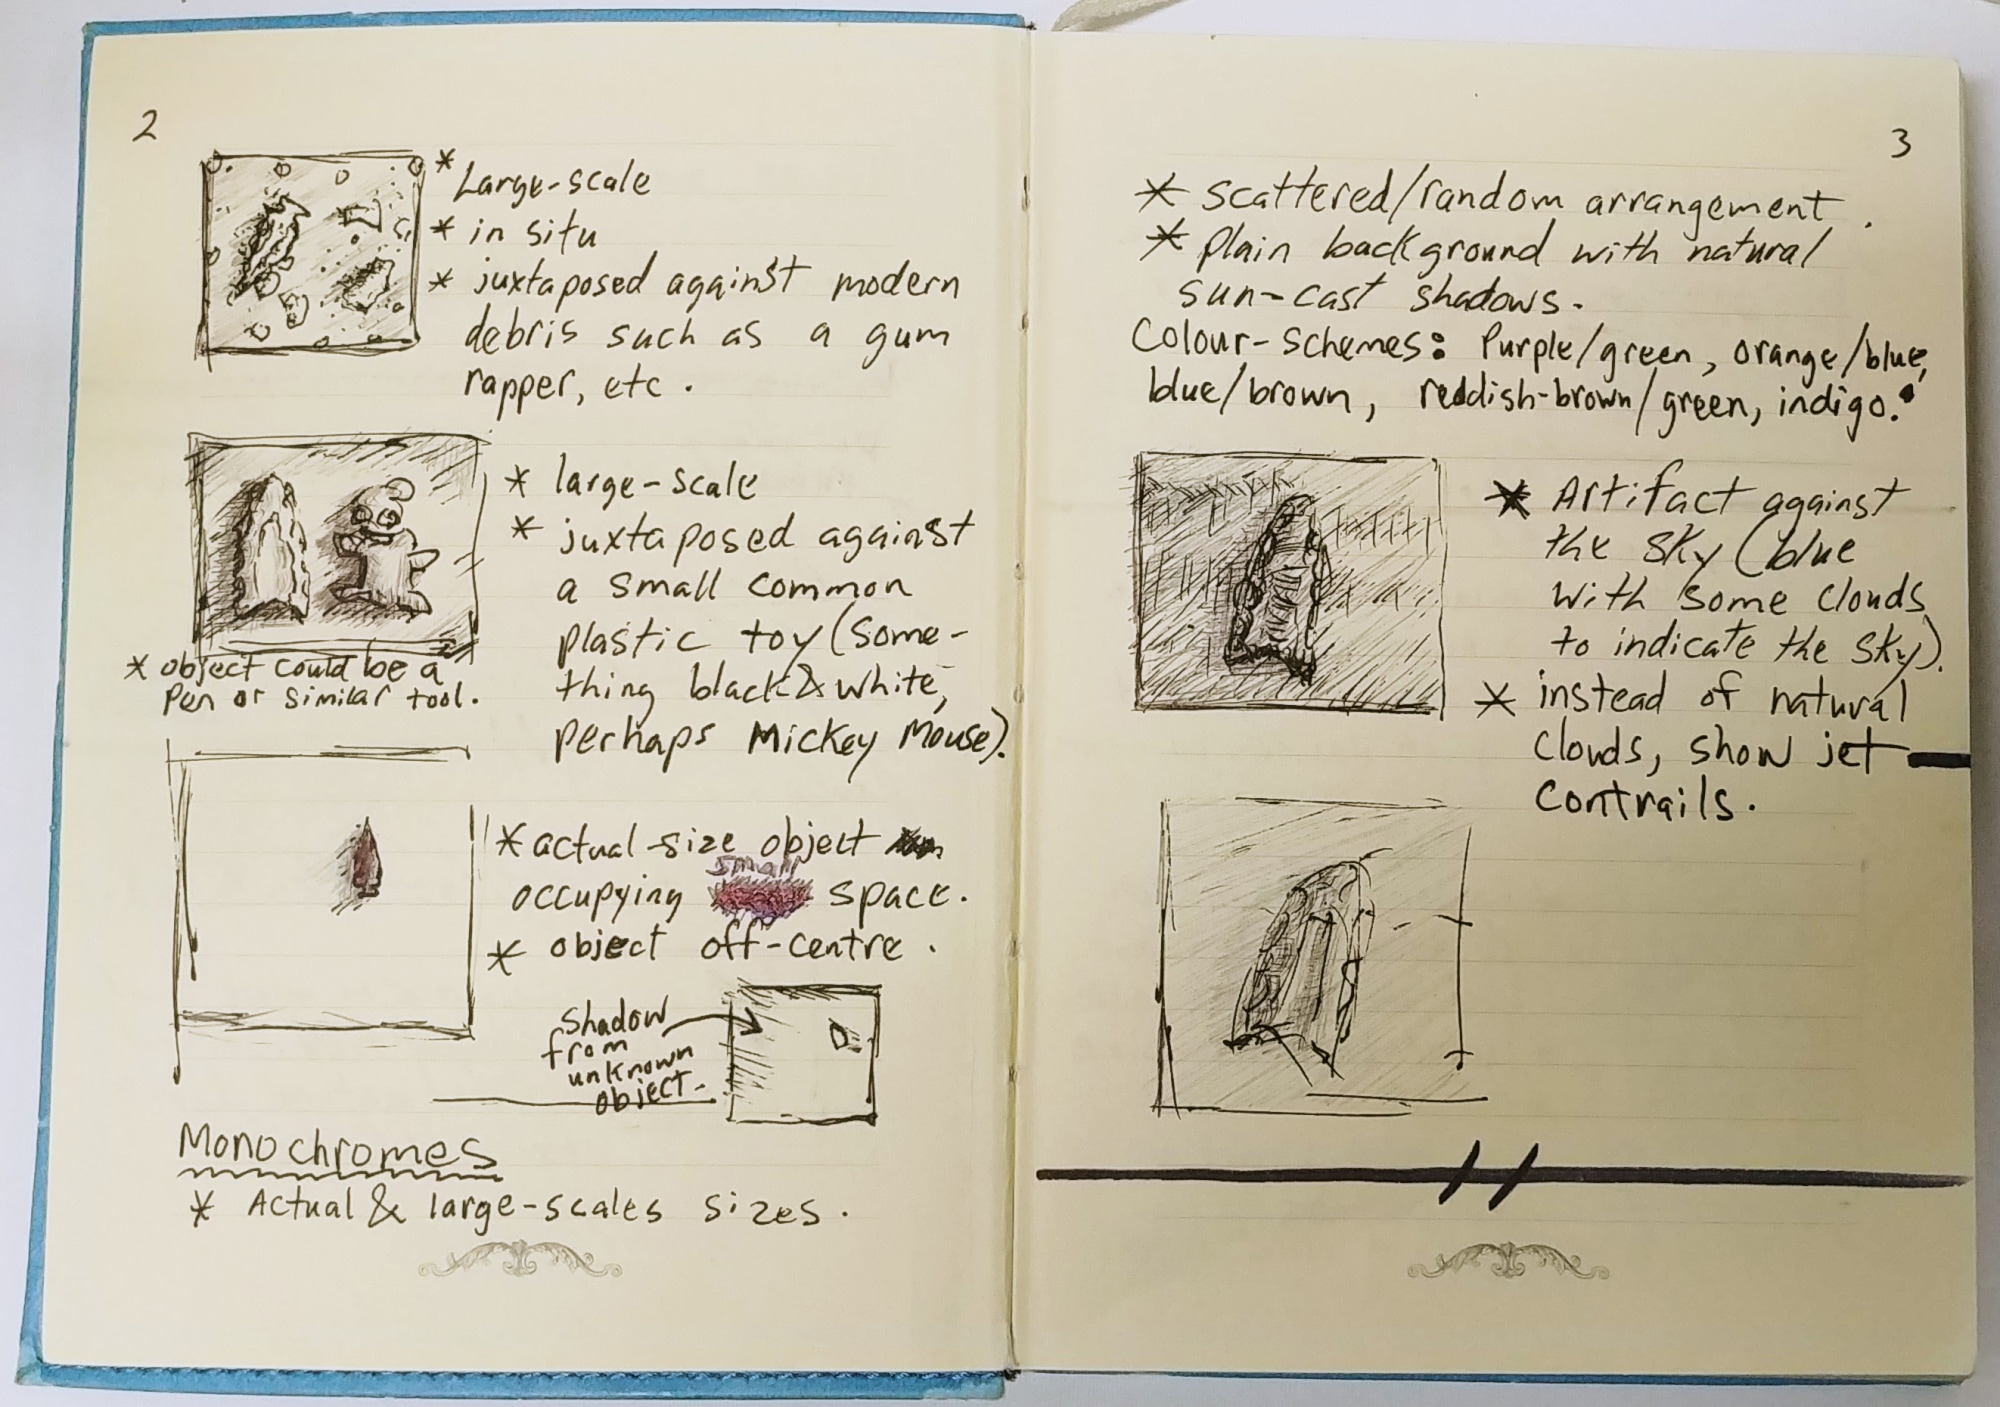 2
* Large-scale
* in situ
* juxtaposed against modern
debris such as a gum
rapper, etc.
* large-scale
* juxtaposed against
a small common
plastic toy (some-
thing black & white,
perhaps Mickey Mouse).
* object could be a
pen or similar tool.
* actual-size object
small
occupying space.
* object off-centre.
shadow
from
unknown
object-
Monochromes
* Actual & large-scales sizes.
3
* scattered/random arrangement.
* plain background with natural
sun-cast shadows.
Colour-schemes: Purple/green, orange/blue,
blue/brown, reddish-brown/green, indigo.
* Artifact against
the sky (blue
with some clouds
to indicate the sky).
* instead of natural
clouds, show jet
contrails.